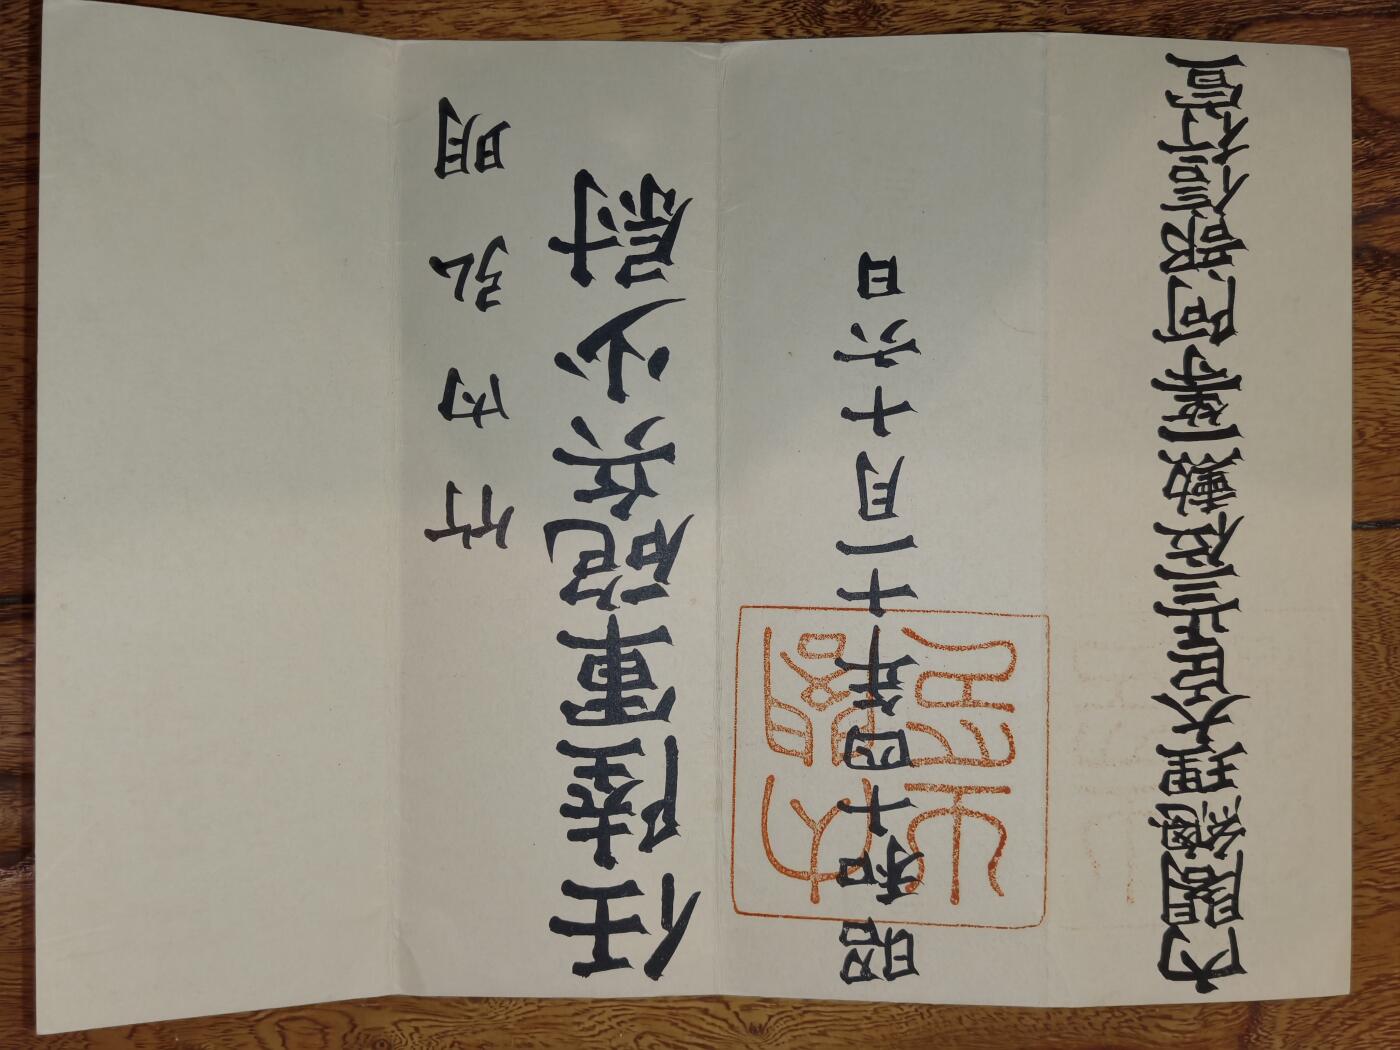 竹内弘明
任陸軍砲兵少尉
昭和十四年十一月十六日
内閣之印
内閣總理大臣正三位勳一等阿部信行宣